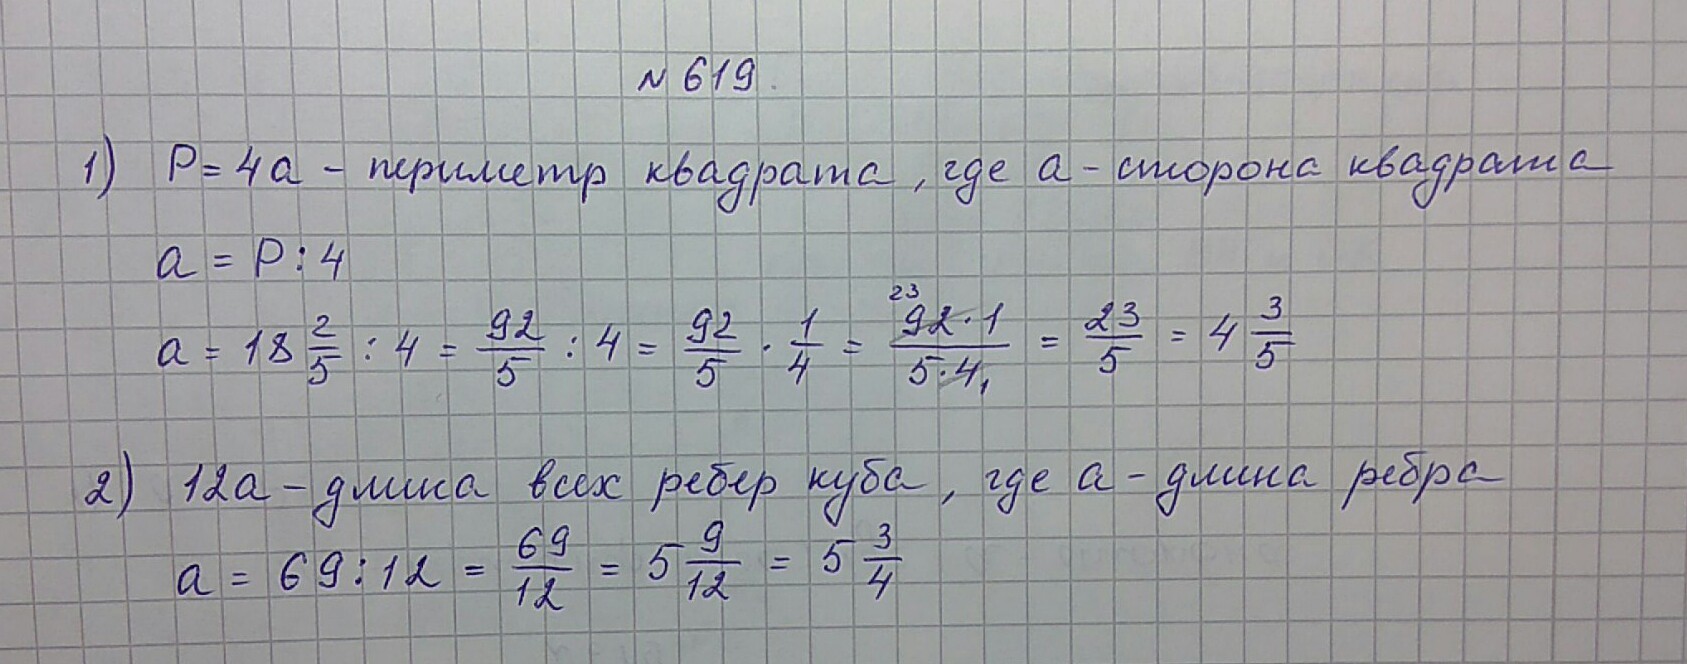 N 619.
1) P = 4a - периметр квадрата, где a - сторона квадрата
a = P : 4
a = 18 2/5 : 4 = 92/5 : 4 = 92/5 · 1/4 = 23 92·1/5·4 1 = 23/5 = 4 3/5
2) 12a - длина всех ребер куба, где a - длина ребра
a = 69 : 12 = 69/12 = 5 9/12 = 5 3/4